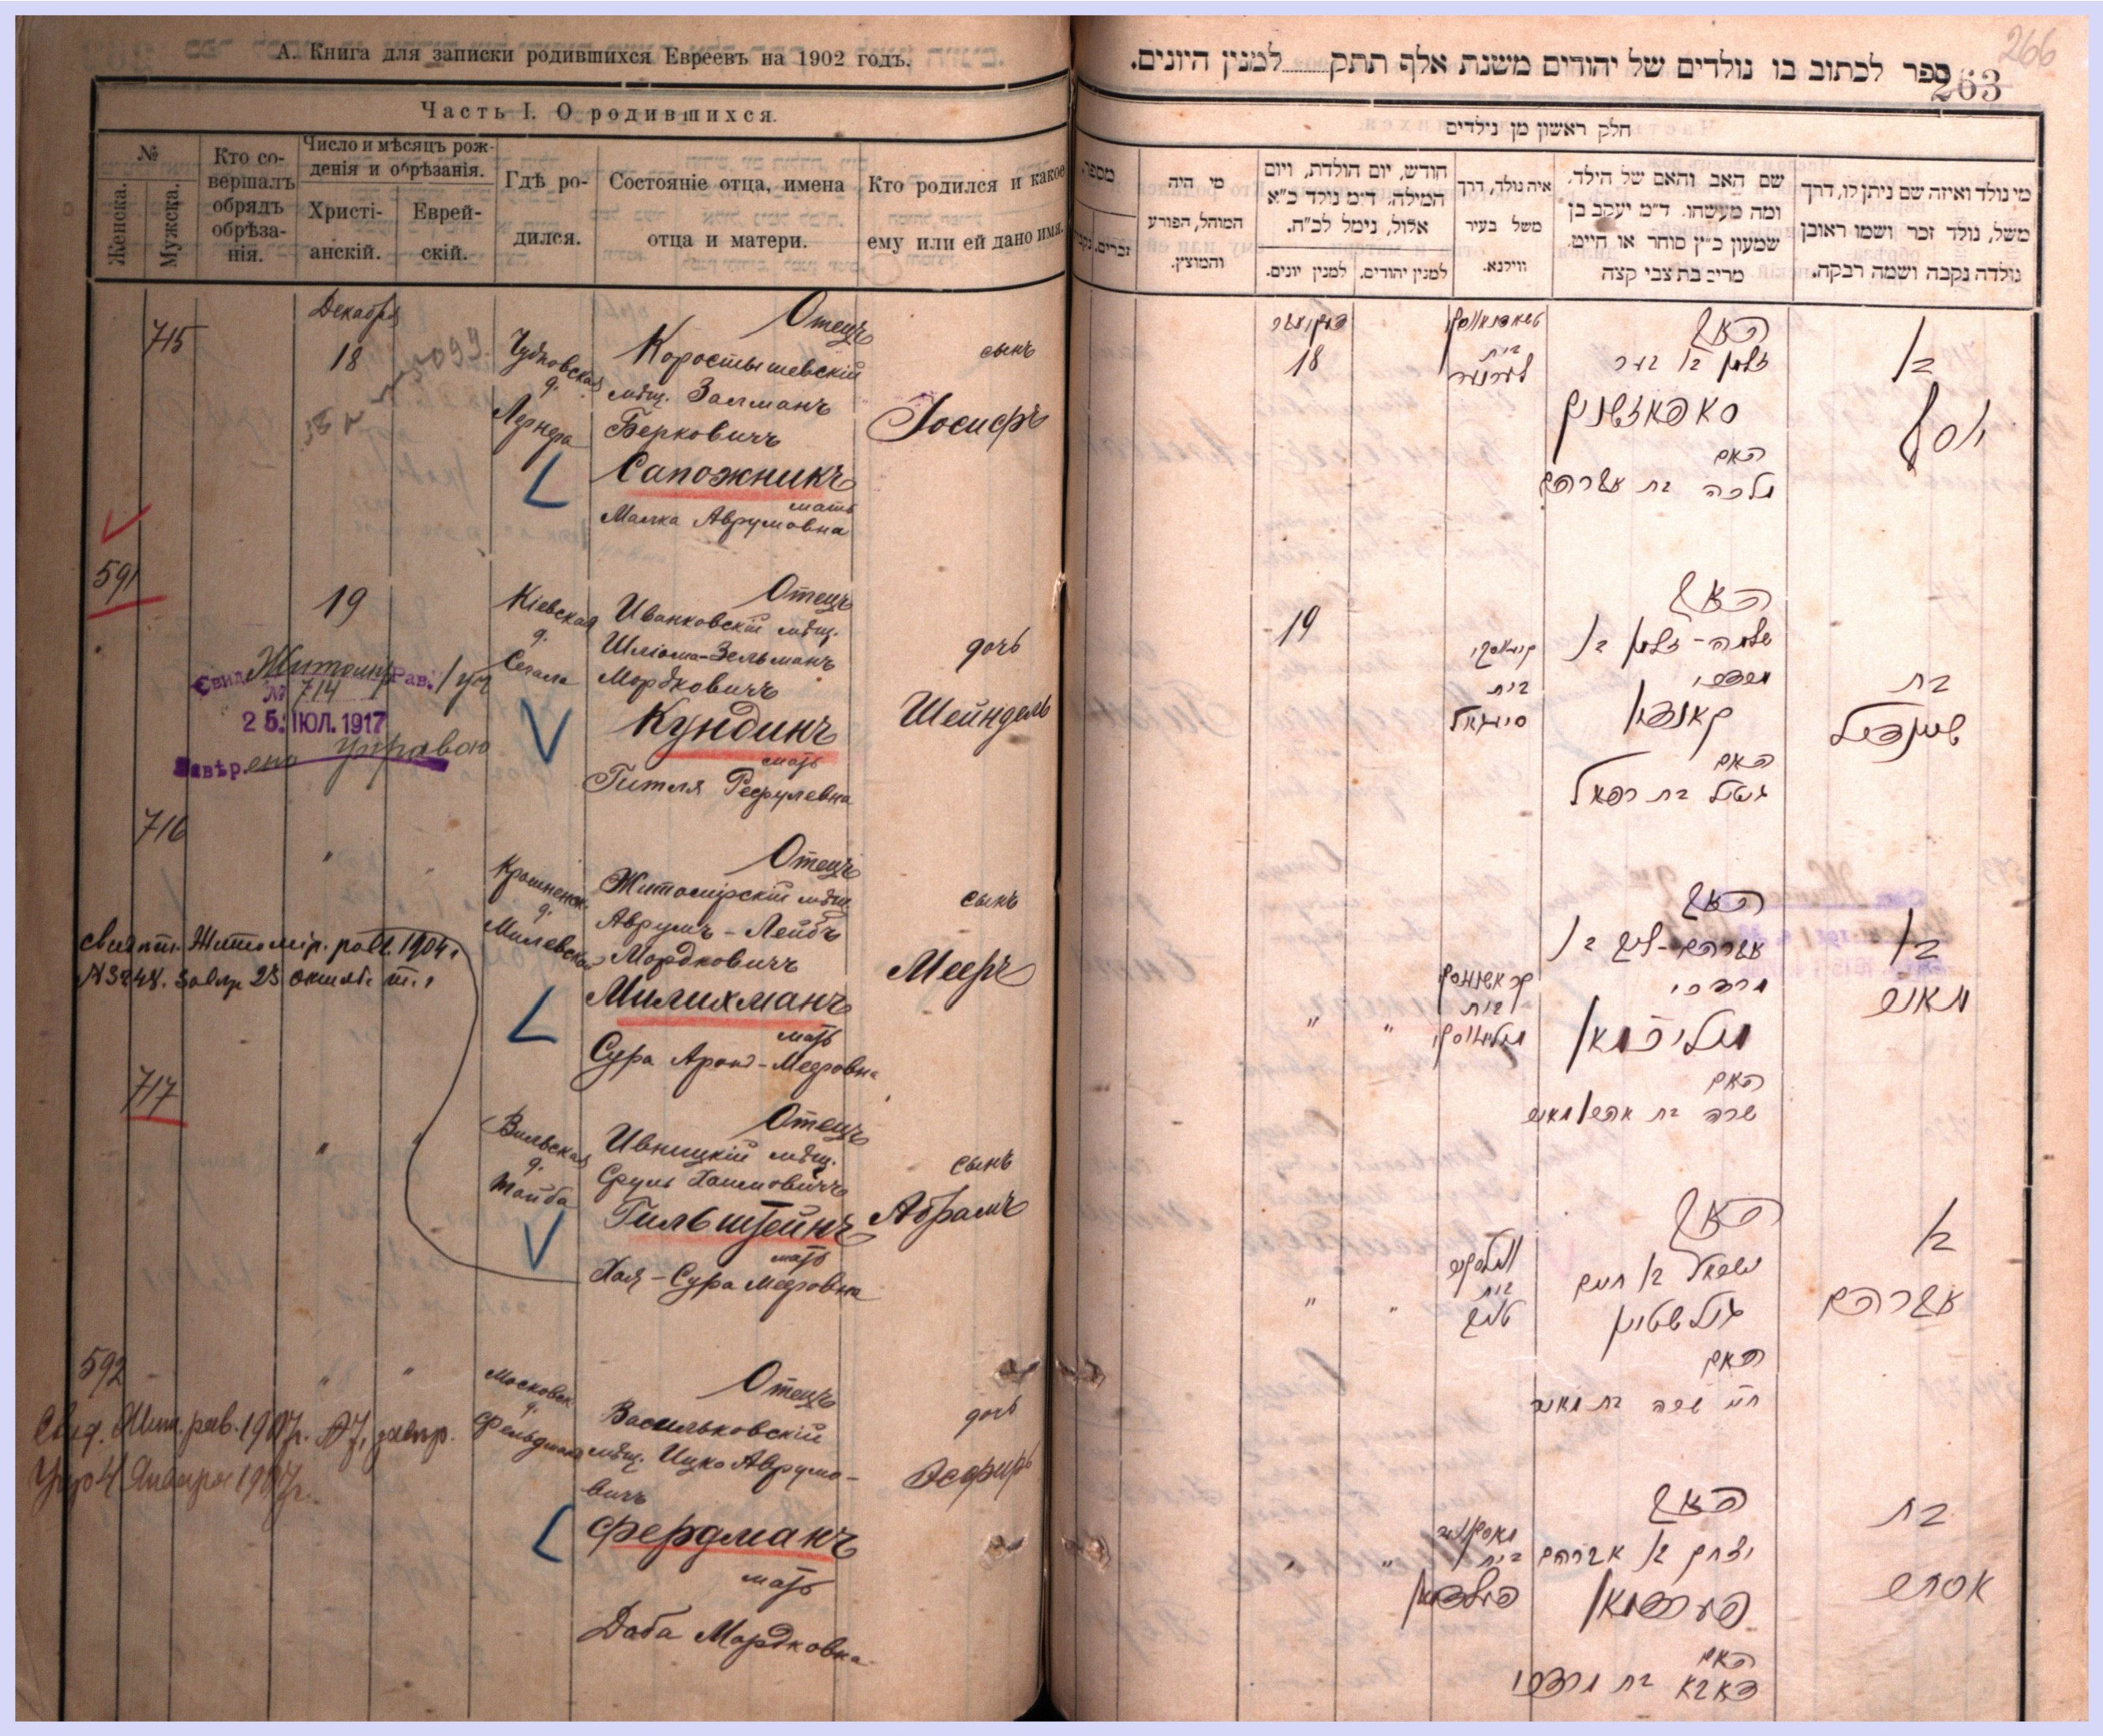 А. Книга для записки родившихся Евреевъ на 1902 годъ.
Часть I. О родившихся.
№
Женска.
Мужска.
Кто совершалъ обрядъ обрѣзанія.
Число и мѣсяцъ рожденія и обрѣзанія.
Христіанскій.
Еврейскій.
Гдѣ родился.
Состояніе отца, имена отца и матери.
Кто родился и какое ему или ей дано имя.
715
Декабря
18
Чудновская
д.
Лернера
Отецъ
Коростышевскій
мѣщ. Залманъ
Берковичъ
Сапожникъ
мать
Малка Аврумовна
сынъ
Іосифъ
591
19
Кіевская
д.
Сегала
Отецъ
Иванковскій мѣщ.
Шліома-Зельманъ
Мордковичъ
Кундинъ
мать
Гитля Рефулевна
дочь
Шейндель
Свид. Житомир Рав.
№ 714
25. ІЮЛ. 1917
Завѣрено управою
716
"
"
Крошненск.
д.
Милевской
Отецъ
Житомірскій мѣщ.
Аврумъ-Лейбъ
Мордковичъ
Милихманъ
мать
Сура Арон-Мееровна
сынъ
Мееръ
717
"
"
Вильская
д.
Тайба
Отецъ
Ивницкій мѣщ.
Сруль Хаимовичъ
Гильштейнъ
мать
Хая-Сура Мееровна
сынъ
Абрамъ
592
"
"
Московск.
д.
Фельдмана
Отецъ
Васильковскій
мѣщ. Ицко Аврумо-
вичъ
Фердманъ
мать
Доба Мордковна
дочь
Эсфирь
266
263
ספר לכתוב בו נולדים של יהודים משנת אלף תתק למנין היונים.
חלק ראשון מן נילדים
מספר.
זכרים.
מי היה המוהל, הפורע והמוצץ.
חודש, יום הולדת, ויום המילה. ד״מ נולד כ״א אלול, נימל לכ״ח.
למנין יונים.
למנין יהודים.
איה נולד, דרך משל בעיר ווילנא.
שם האב והאם של הילד. ומה מעשהו. ד״מ יעקב בן שמעון כ״ץ סוחר או חייט. מרים בת צבי קצה
מי נולד ואיזה שם ניתן לו, דרך משל, נולד זכר ושמו ראובן נולדה נקבה ושמה רבקה.
18
בית
לערנער
האב
זלמן בן בער
סאפאזשניק
האם
מלכה בת אברהם
בן
יוסף
19
בית
האב
שלמה-זלמן בן
מרדכי
קאנדין
האם
גיטל בת רפאל
בת
שיינדיל
"
"
בית
האב
אברהם-ליב בן
מרדכי
מיליכמאן
האם
בן
מאיר
"
"
בית
טייב
האב
ישראל בן חיים
גילשטיין
האם
חי׳ שרה בת מאיר
בן
אברהם
"
"
בית
פעלדמאן
האב
יצחק בן אברהם
פערדמאן
האם
דאבא בת מרדכי
בת
אסתר